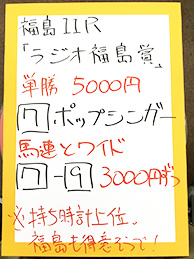 福島11R
「ラジオ福島賞」
単勝 5000円
7.ポップシンガー
馬連とワイド
7-9 3000円ずつ
※持ち時計上位。
福島も得意そうで！